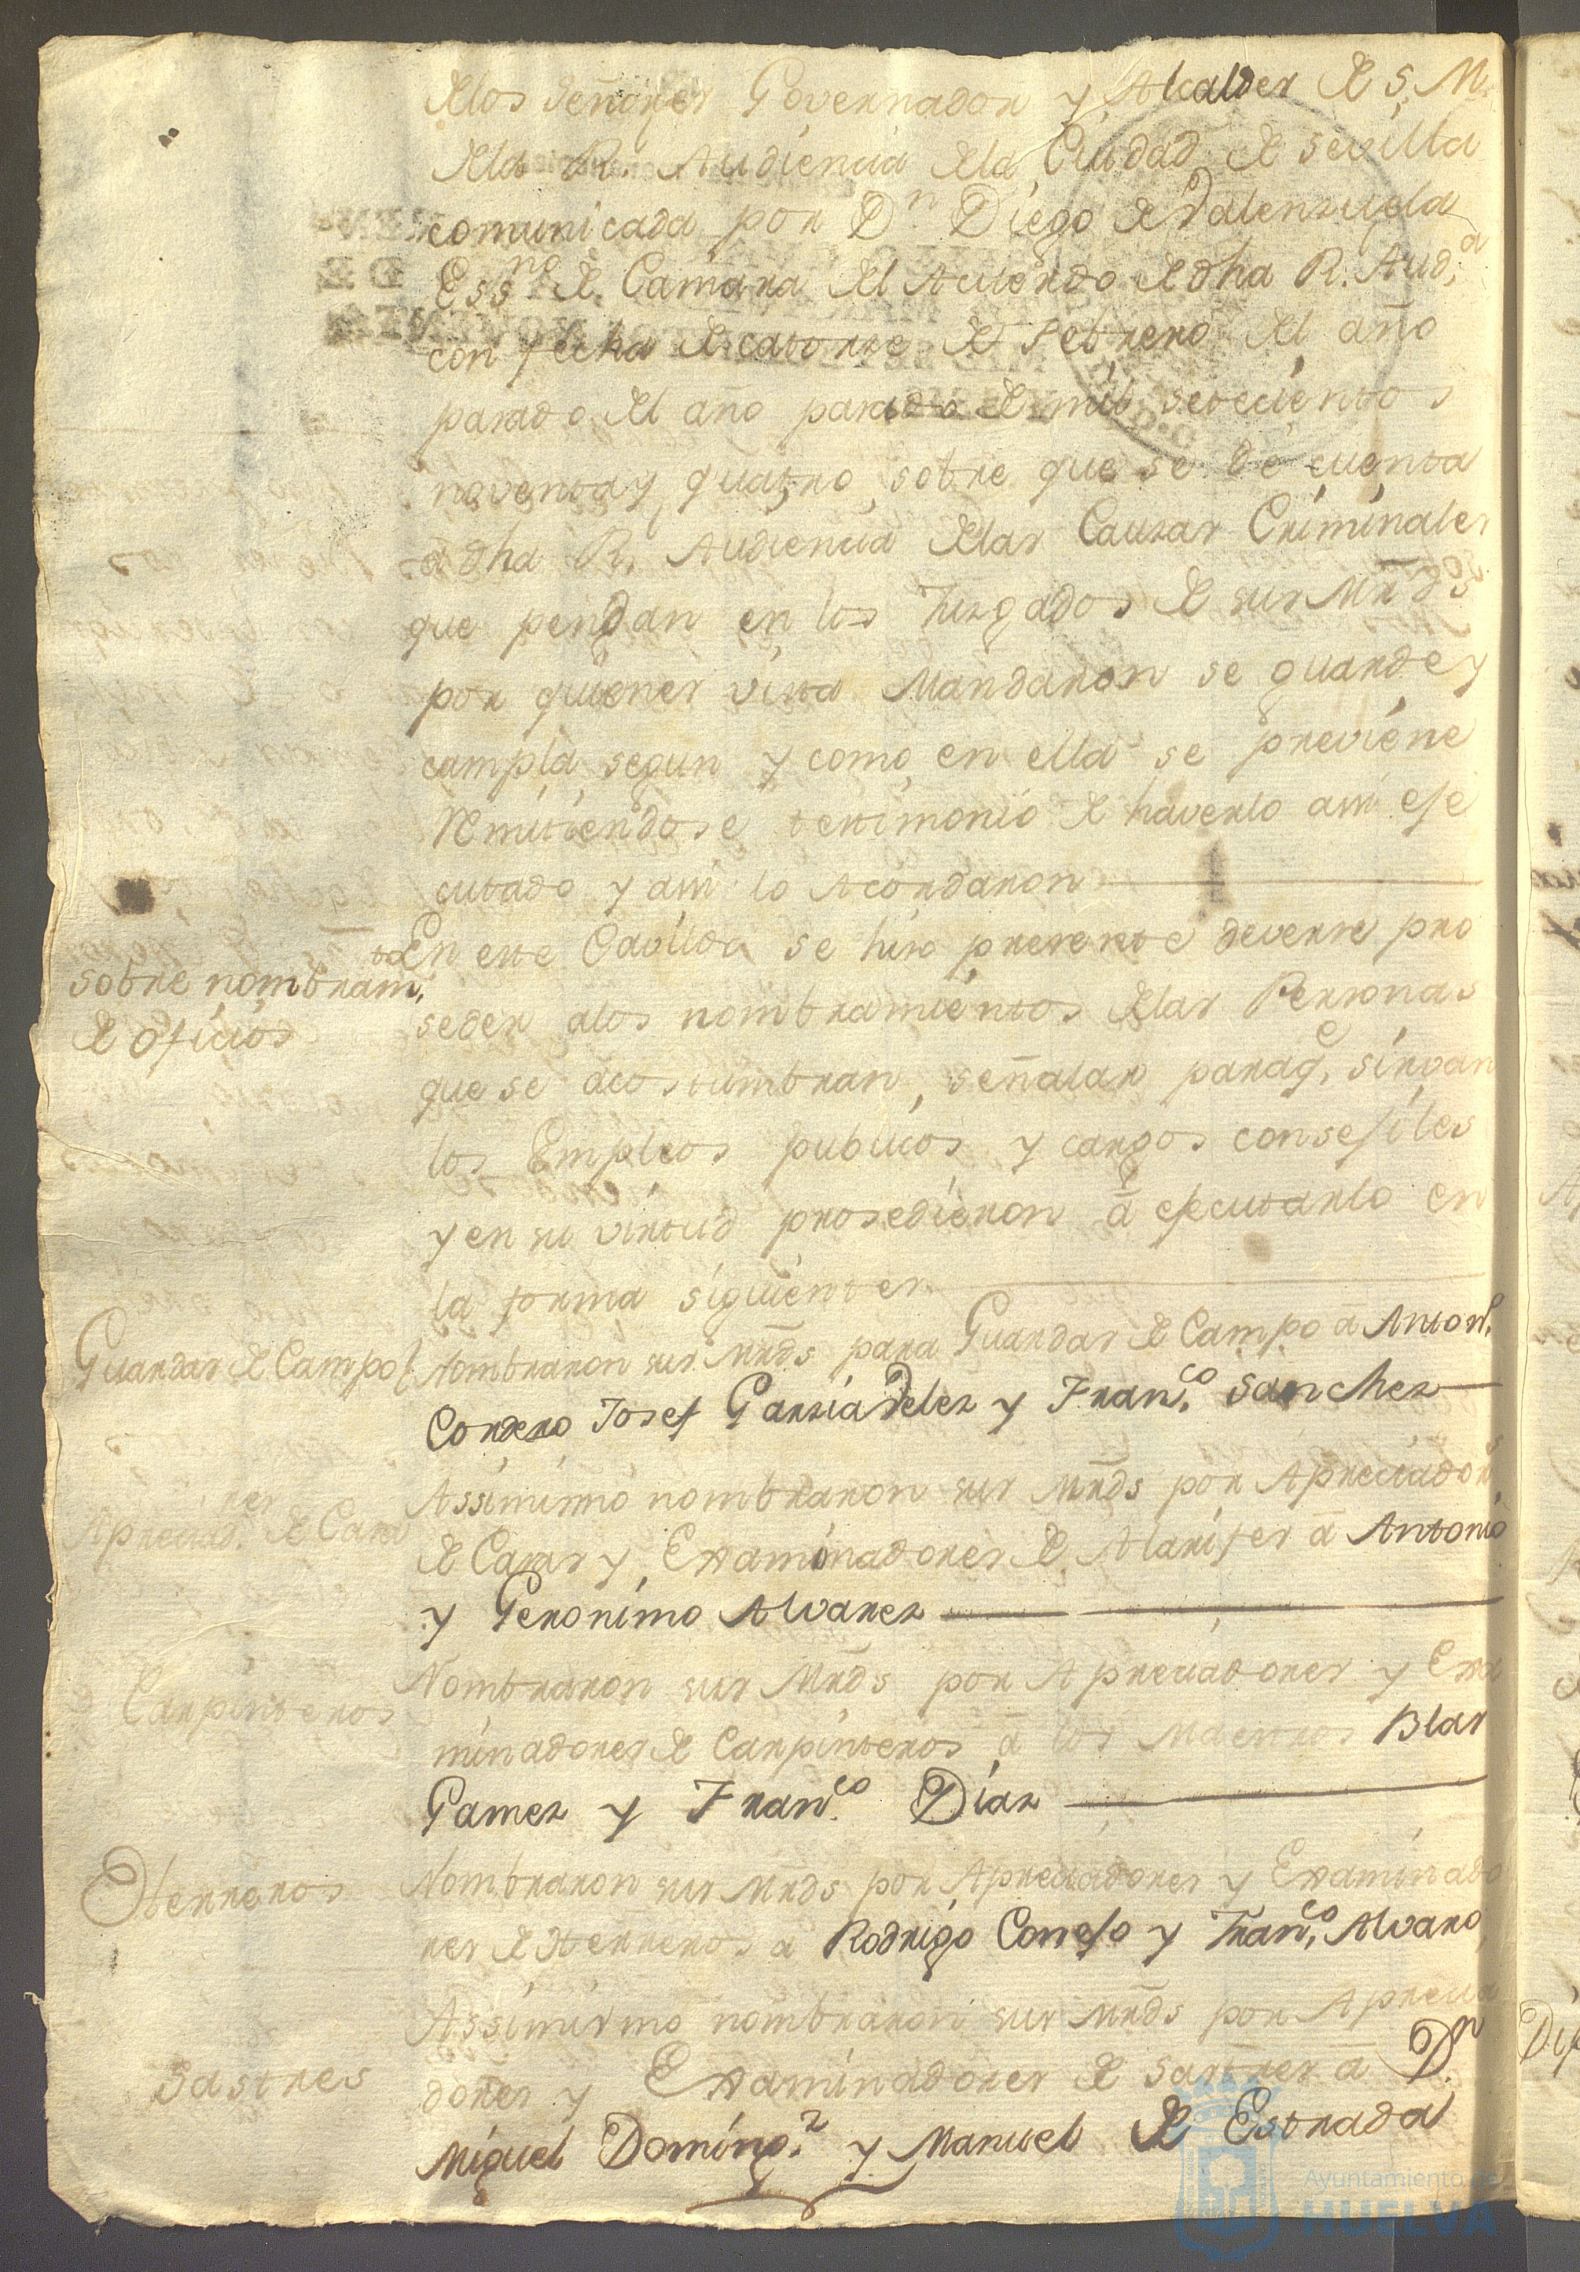 Delos Señores Governador y Alcaldes de S. M.
dela R. Audiencia dela Ciudad de Sevilla
comunicada por Dn Diego de Valenzuela
Essno de Camara del Acuerdo de dha R. Auda
con fecha de catorze de Febrero del año
pasado del año pasado de mil setecientos
noventa y quatro, sobre que se dé cuenta
a dha R. Audiencia delas Causas Criminales
que pendan en los Juzgados de sus Mrds
por quienes vista Mandaron se guarde y
cumpla segun y como en ella se previene
Remitiendose testimonio de haverlo assi eje
cutado y assi lo Acordaron
sobre nombramto
de oficios
En este Cavildo se hizo presente deverse pro
seder alos nombramientos delas Personas
que se acostumbran señalar paraqe sirvan
los Empleos publicos y cargos consejiles
y en su virtud prosedieron â ejecutarlo en
la forma siguientes
Guardas de Campo
Nombraron sus Mrds para Guardas de Campo â Anto
Cordero Josef Garzia Velez y Franco Sanchez
Apreciadres de Casas
Assimismo nombraron sus Mrds por Apreciadors
de Casas y Examinadores de Alarifes â Antonio
y Geronimo Alvarez
Carpinteros
Nombraron sus Mrds por Apreciadores y Exa
minadores de Carpinteros â los Maestros Blas
Gamez y Franco Diaz
Herreros
Nombraron sus Mrds por Apreciadores y Examinado
res de Herreros a Rodrigo Conejo y Franco Alvaro
Sastres
Assimismo nombraron sus Mrds por Aprecia
dores y Examinadores de Sastres â Dn
Miguel Domingz y Manuel de Estrada
Ayuntamiento de
HUELVA